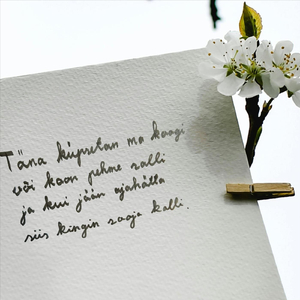 Täna küpsetan ma koogi
või koon pehme salli
ja kui jään ajahätta
siis kingin sooja kalli.